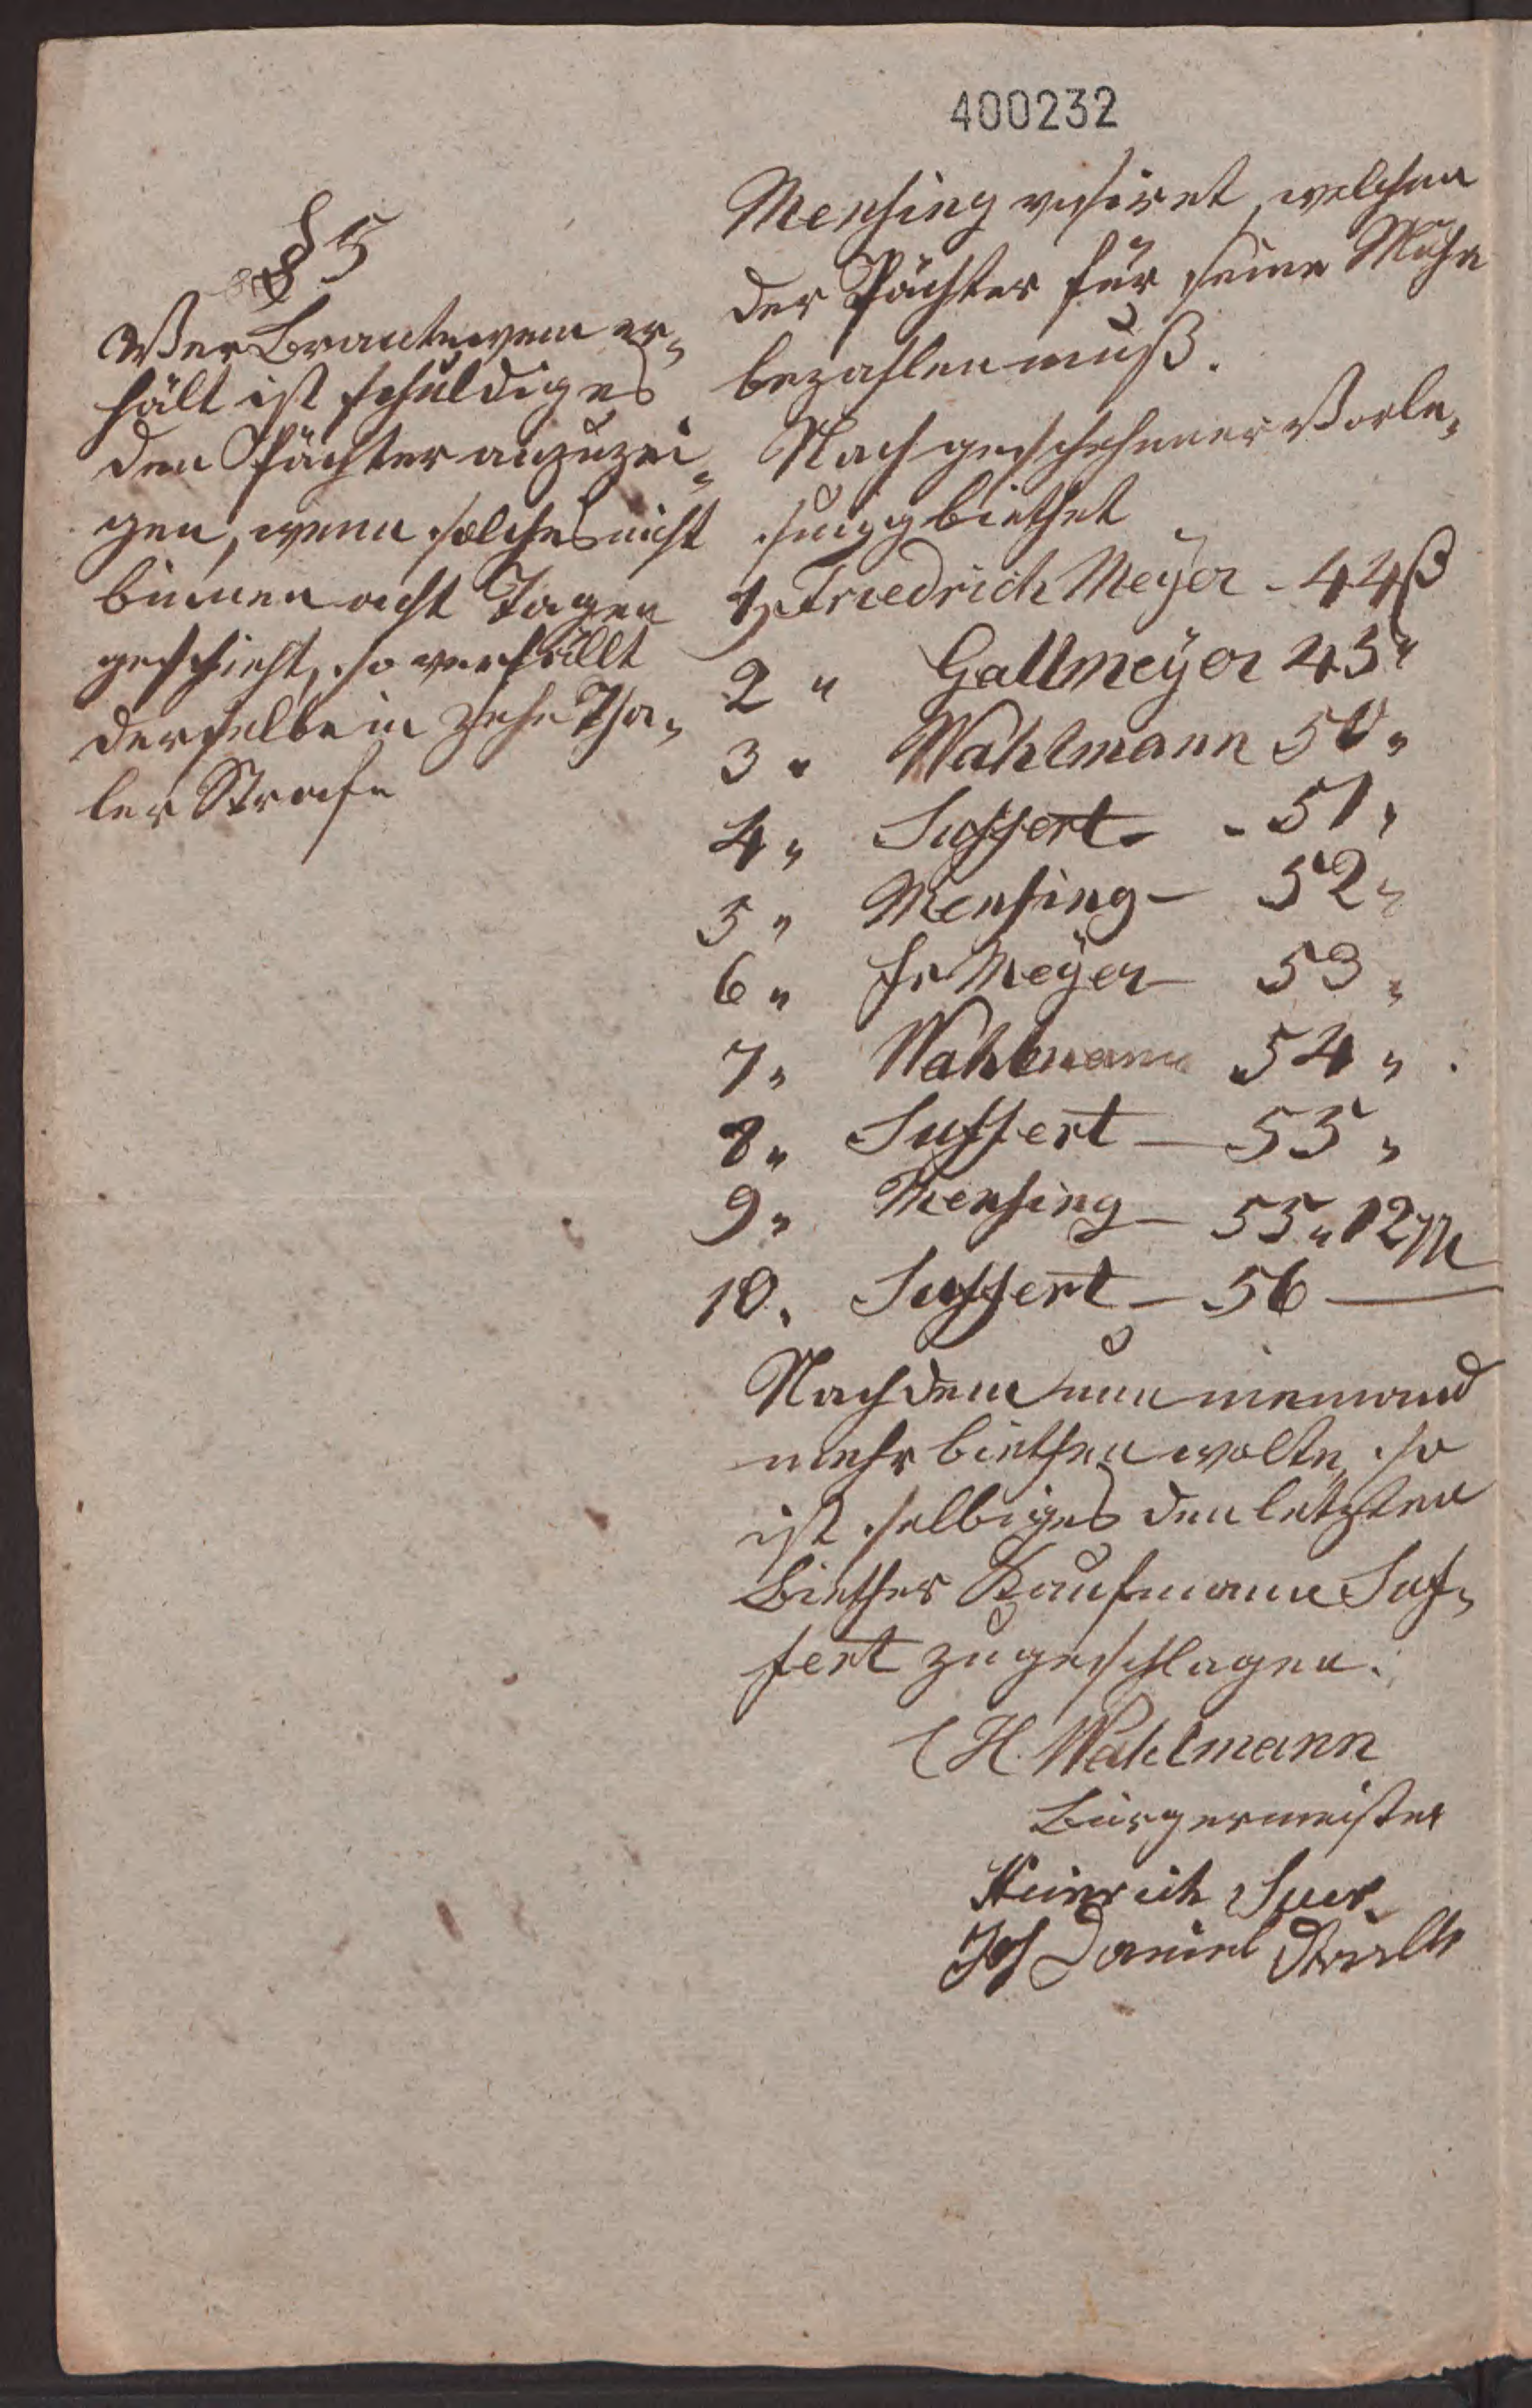 400232
§ 5
Wer Brantewein er-
hält ist schuldig es
den Pächter anzuzei-
gen, wenn solches nicht
binnen acht Tagen
geschieht, so verfällt
derselbe in zehn Tha-
ler Strafe
Mensing visiret, welchen
der Pächter für seine Mühe
bezahlen muß.
Nach geschehener Vorle-
sung biethet
1, Friedrich Meÿer - 44
2 " Gallmeÿer 45 "
3 " Wahlmann 50 "
4 " Suffert - 51 "
5 " Mensing - 52 "
6 " Fr Meÿer - 53 "
7 " Wahlmann 54 "
8 " Suffert - 55 "
9 " Mensing - 55 " 12
10. Suffert - 56 —
Nachdem nun niemand
mehr biethen wolte, so
ist selbiges den letzten
Biether Kaufmann Suf-
fert zugeschlagen.
CH. Wahlmann
Bürgermeister
Heinrich Suer
Joh Daniel